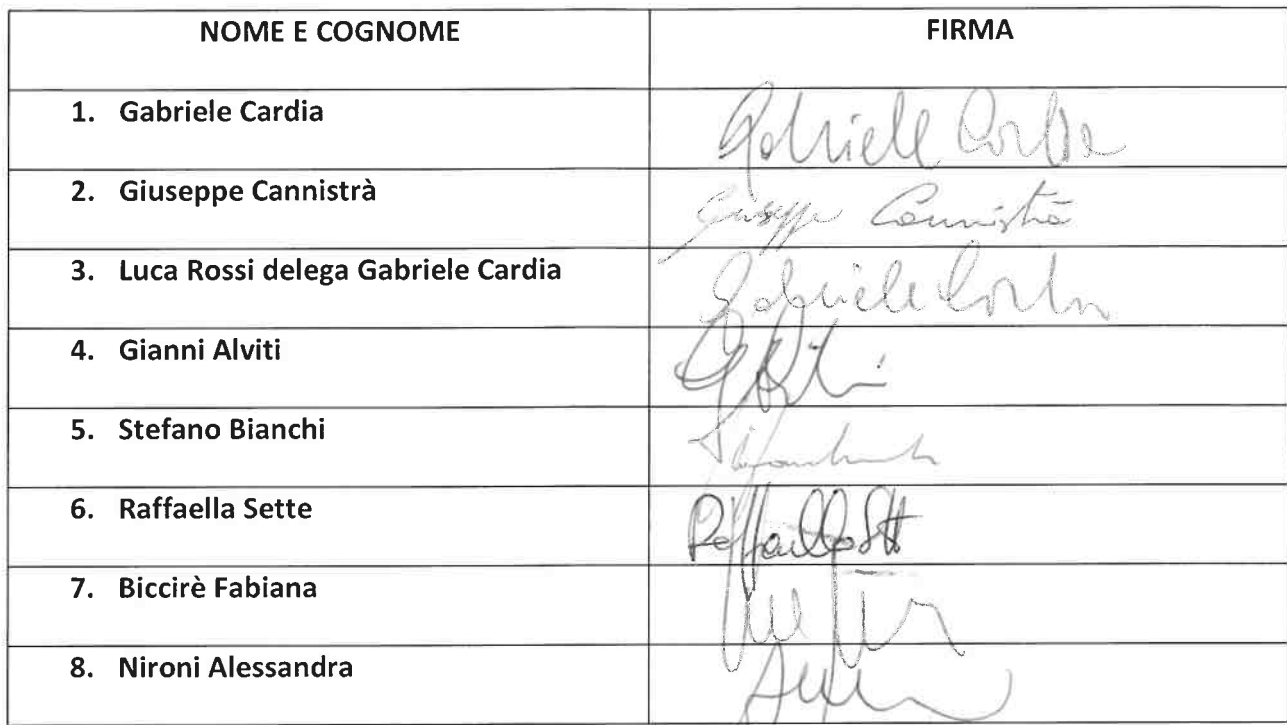 NOME E COGNOME FIRMA
1. Gabriele Cardia Gabriele Cardia
2. Giuseppe Cannistrà Giuseppe Cannistrà
3. Luca Rossi delega Gabriele Cardia Gabriele Cardia
4. Gianni Alviti
5. Stefano Bianchi
6. Raffaella Sette Raffaella Sette
7. Biccirè Fabiana
8. Nironi Alessandra